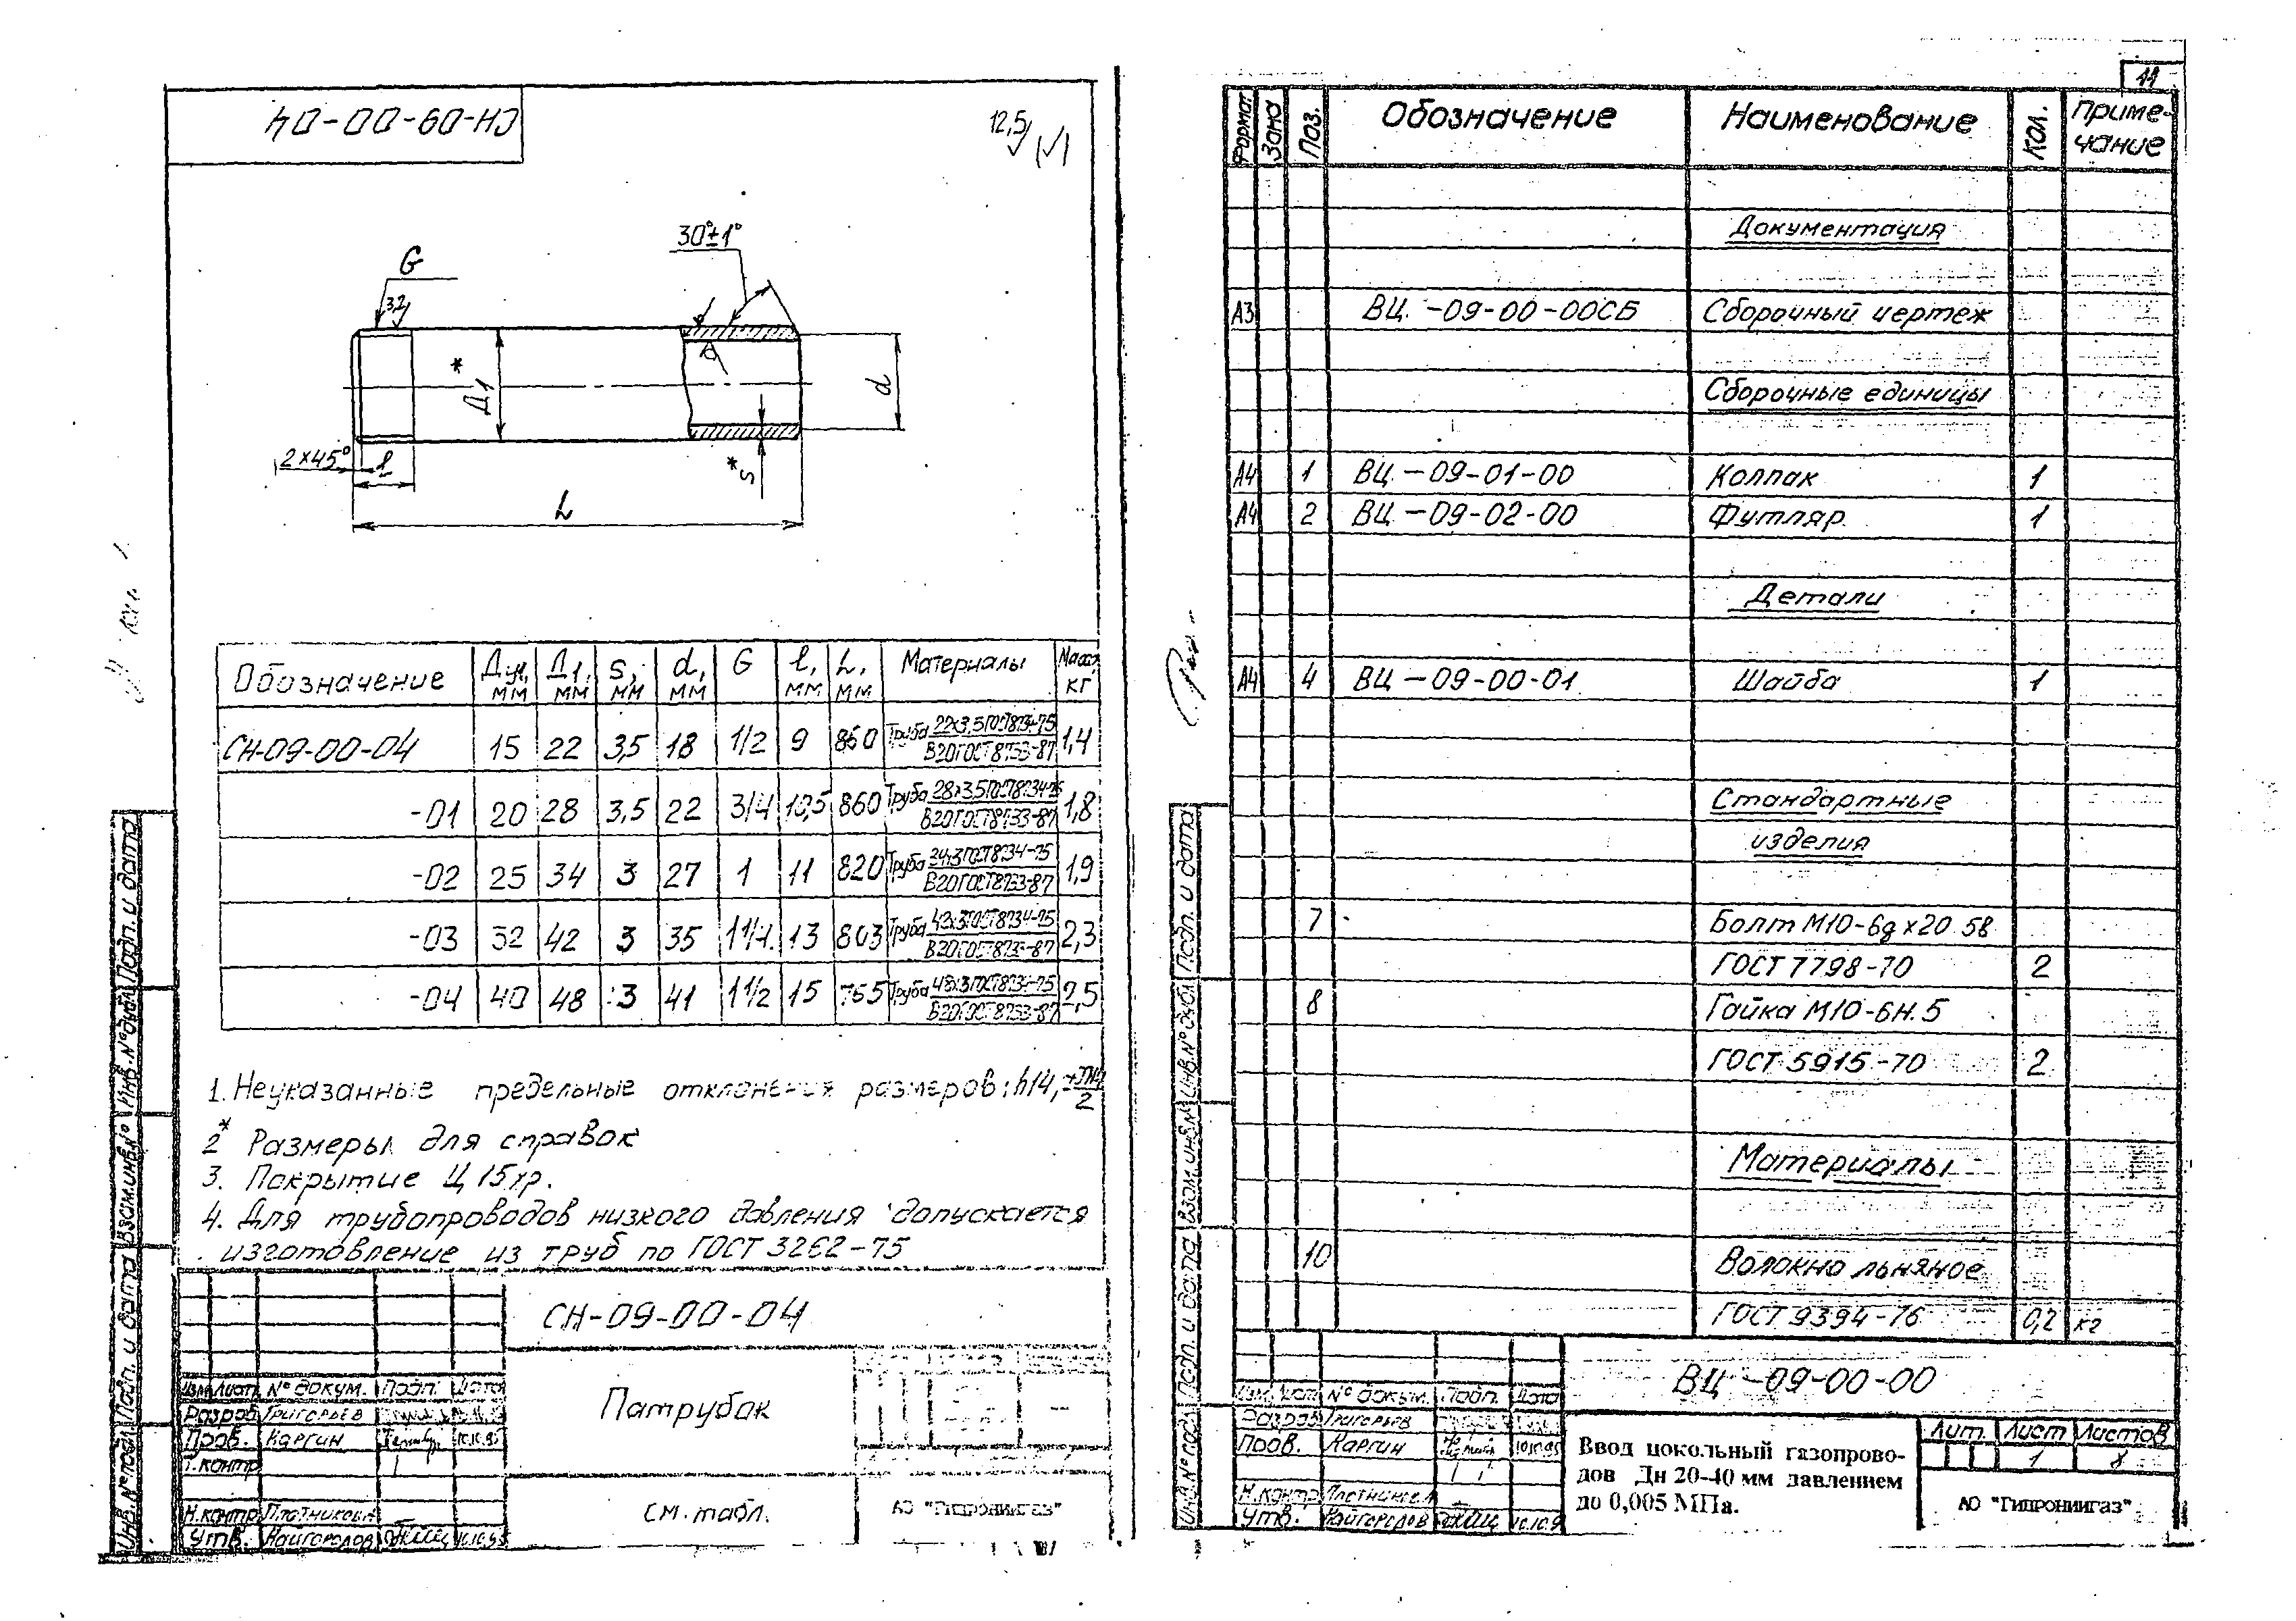 СН-09-00-04
12,5
G
3,2
30°±1°
Д1*
d
s*
2×45°
l
L
Обозначение Ду, мм Д1, мм s, мм d, мм G l, мм L, мм Материалы Масса, кг
СН-09-00-04 15 22 3,5 18 1/2 9 860 Труба 22×3,5 ГОСТ 8734-75 В20 ГОСТ 8733-87 1,4
-01 20 28 3,5 22 3/4 10,5 860 Труба 28×3,5 ГОСТ 8734-75 В20 ГОСТ 8733-87 1,8
-02 25 34 3 27 1 11 820 Труба 34×3 ГОСТ 8734-75 В20 ГОСТ 8733-87 1,9
-03 32 42 3 35 1 1/4 13 803 Труба 42×3 ГОСТ 8734-75 В20 ГОСТ 8733-87 2,3
-04 40 48 3 41 1 1/2 15 765 Труба 48×3 ГОСТ 8734-75 В20 ГОСТ 8733-87 2,5
1. Неуказанные предельные отклонения размеров: h14,
2* Размеры для справок
3. Покрытие Ц 15хр.
4. Для трубопроводов низкого давления допускается
изготовление из труб по ГОСТ 3262-75
Подп. и дата
Инв. № дубл.
Взам. инв. №
Подп. и дата
Инв. № подл.
СН-09-00-04
Изм. Лист № докум. Подп. Дата
Разраб. Григорьев
Пров. Каргин 10.10.95
Т.контр
Н.контр Плотникова
Утв. Кайгородов 10.10.95
Патрубок
См. табл.
АО "Гипрониигаз"
11
Формат Зона Поз. Обозначение Наименование Кол. Приме-
чание
Документация
А3 ВЦ-09-00-00СБ Сборочный чертеж
Сборочные единицы
А4 1 ВЦ-09-01-00 Колпак 1
А4 2 ВЦ-09-02-00 Футляр 1
Детали
А4 4 ВЦ-09-00-01 Шайба 1
Стандартные
изделия
7 Болт М10-6g×20.58
ГОСТ 7798-70 2
8 Гайка М10-6Н.5
ГОСТ 5915-70 2
Материалы
10 Волокно льняное
ГОСТ 9394-76 0,2 кг
Подп. и дата
Инв. № дубл.
Взам. инв. №
Подп. и дата
Инв. № подл.
ВЦ-09-00-00
Изм. Лист № докум. Подп. Дата
Разраб. Григорьев
Пров. Каргин 10.10.95
Н.контр Плотникова
Утв. Кайгородов 10.10.9
Ввод цокольный газопрово-
дов Дн 20-40 мм давлением
до 0,005 МПа.
Лит. Лист Листов
1 8
АО "Гипрониигаз"